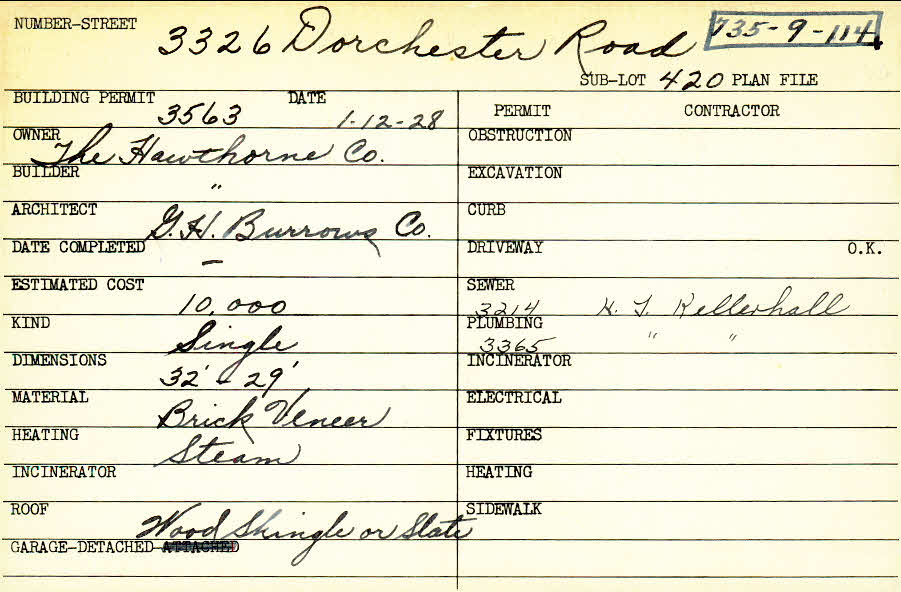 NUMBER-STREET 3326 Dorchester Road 735-9-114
SUB-LOT 420 PLAN FILE
BUILDING PERMIT 3563 DATE 1-12-28
PERMIT CONTRACTOR
OWNER The Hawthorne Co.
OBSTRUCTION
BUILDER "
EXCAVATION
ARCHITECT G.H. Burrows Co.
CURB
DATE COMPLETED —
DRIVEWAY O.K.
ESTIMATED COST 10,000
SEWER 3214 H. J. Kellerhall
KIND Single
PLUMBING 3365 " "
DIMENSIONS 32' - 29'
INCINERATOR
MATERIAL Brick Veneer
ELECTRICAL
HEATING Steam
FIXTURES
INCINERATOR
HEATING
ROOF Wood Shingle or Slate
SIDEWALK
GARAGE-DETACHED-ATTACHED